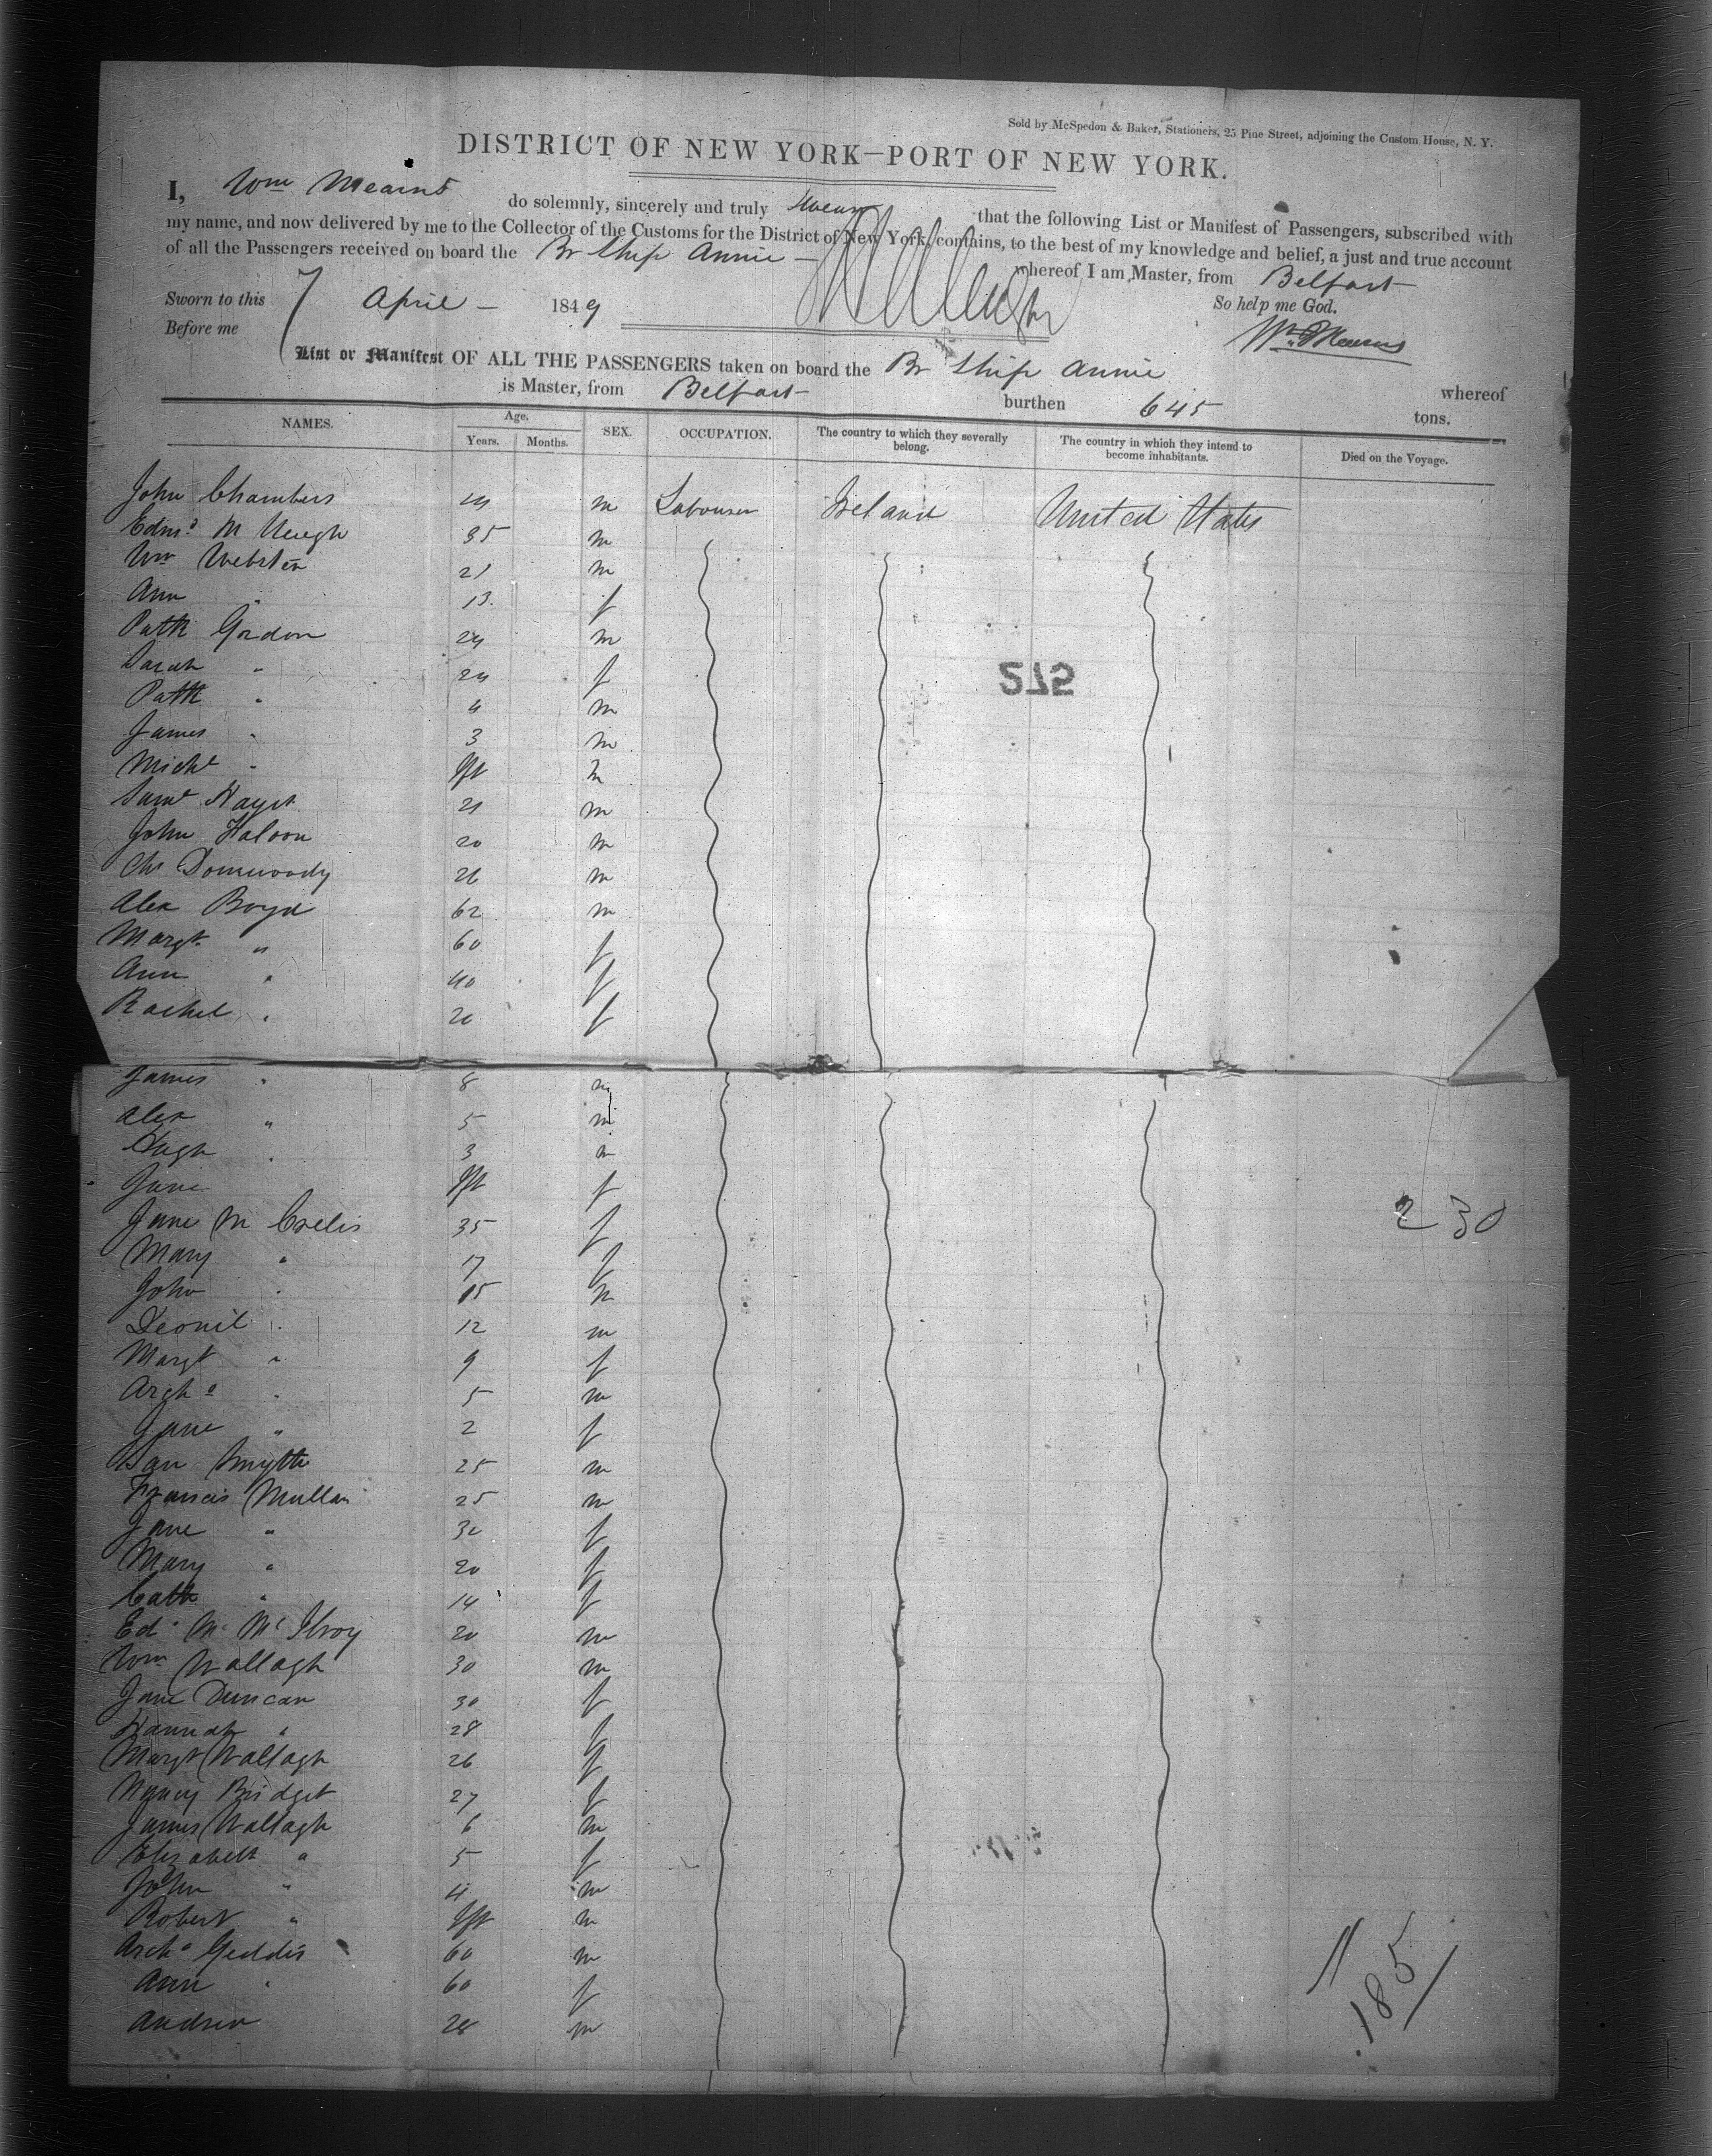 Sold by McSpedon & Baker, Stationers, 25 Pine Street, adjoining the Custom House, N. Y.
DISTRICT OF NEW YORK—PORT OF NEW YORK.
I, Wm Mearns do solemnly, sincerely and truly swear that the following List or Manifest of Passengers, subscribed with
my name, and now delivered by me to the Collector of the Customs for the District of New York, contains, to the best of my knowledge and belief, a just and true account
of all the Passengers received on board the Br Ship Annie — whereof I am Master, from Belfast
Sworn to this 7 April — 1849 So help me God.
Before me Wm Mearns
List or Manifest OF ALL THE PASSENGERS taken on board the Br Ship Annie whereof
is Master, from Belfast burthen 645 tons.
NAMES. Age. Years. Months. SEX. OCCUPATION. The country to which they severally belong. The country in which they intend to become inhabitants. Died on the Voyage.
John Chambers m Labourer Ireland United States
Edmd M 35 m
Wm Webster 21 m
Ann " 13 f
Patk Gordon 24 m
Sarah " 24 f
275
Patk " 4 m
James " 3 m
Michl " Ift m
Saml 21 m
John 20 m
Chs 26 m
Alex Boyd 62 m
Margt " 60 f
Ann " 40 f
Rachel " 20 f
James " 8 m
Alex " 5 m
Hugh " 3 m
Jane Ift f
230
Jane M 35 f
Mary " 17 f
John " 15 m
12 m
Margt " 9 f
Archd " 5 m
Jane " 2 f
Smyth 25 m
Francis Mullan 25 m
Jane " 30 f
Mary " 20 f
Cath " 14 f
Ed Mc McIlroy 20 m
Wm Wallagh 30 m
Jane Duncan 30 f
Hannah " 28 f
Margt Wallagh 26 f
Nancy Bridget 27 f
James Wallagh 6 m
Elizabeth " 5 f
John " 4 m
Robert " Ift m
Archd Geddis 60 m
Ann " 60 f
Andrew 28 m
185